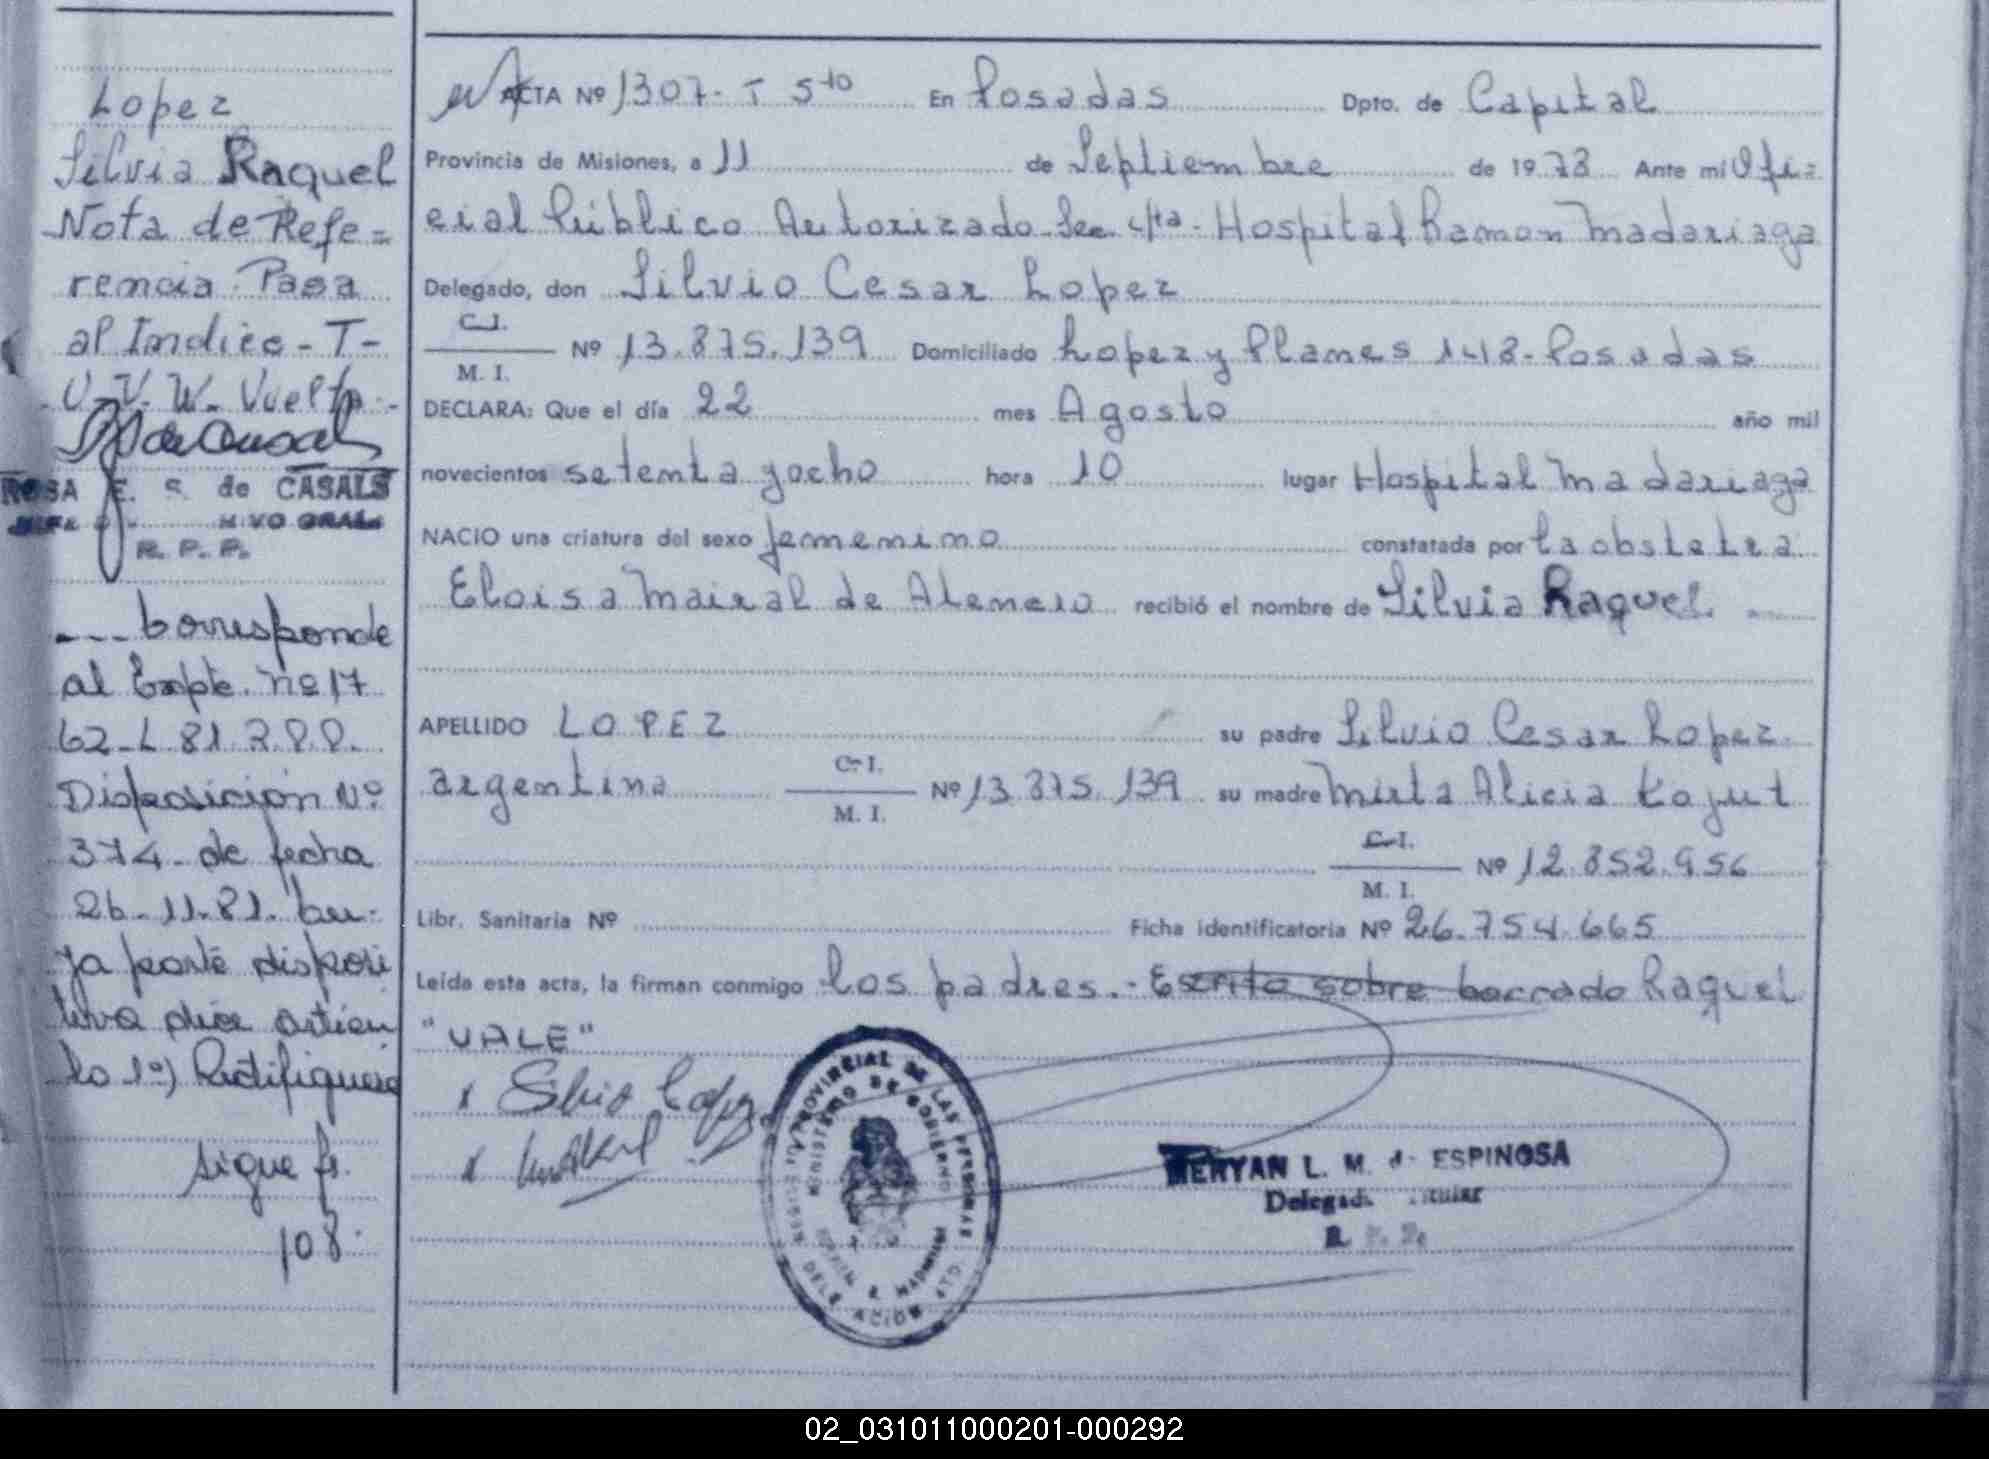 Lopez
Silvia Raquel
Nota de Refe=
rencia Pasa
al Indice - T -
U. V. W. Vuelta.-
ROSA E. S. de CASALS
R. P. P.
--- Corresponde
al Expte. nº 17
62-L 81 R.P.P.
Disposición Nº
374 de fecha
26-11-81. Cu-
ya parte disposi
tiva dice artícu
lo 1º) Rectifíquese
sigue fs.
108.
ACTA Nº 1307- T 5to En Posadas Dpto. de Capital
Provincia de Misiones, a 11 de Septiembre de 1978 Ante mí Ofi=
cial Público Autorizado Sec 4ta- Hospital Ramon Madariaga
Delegado, don Silvio Cesar Lopez
C.I.
M. I.
Nº 13.875.139 Domiciliado Lopez y Planes 148- Posadas
DECLARA: Que el día 22 mes Agosto año mil
novecientos setenta y ocho hora 10 lugar Hospital Madariaga
NACIO una criatura del sexo femenino constatada por la obstetra
Eloisa Mairal de Atencio recibió el nombre de Silvia Raquel
APELLIDO LOPEZ su padre Silvio Cesar Lopez
argentina C.I.
M. I.
Nº 13.875.139 su madre Mirta Alicia Kojut
C.I.
M. I.
Nº 12.852.956
Libr. Sanitaria Nº Ficha identificatoria Nº 26.754.665
Leída esta acta, la firman conmigo los padres.- Escrito sobre borrado Raquel
"VALE"
x Silvio Lopez
x
DIR. PROVINCIAL DE LAS PERSONAS
MINISTERIO DE GOBIERNO
MERYAN L. M. de ESPINOSA
Delegada Titular
R. P. P.
02_031011000201-000292